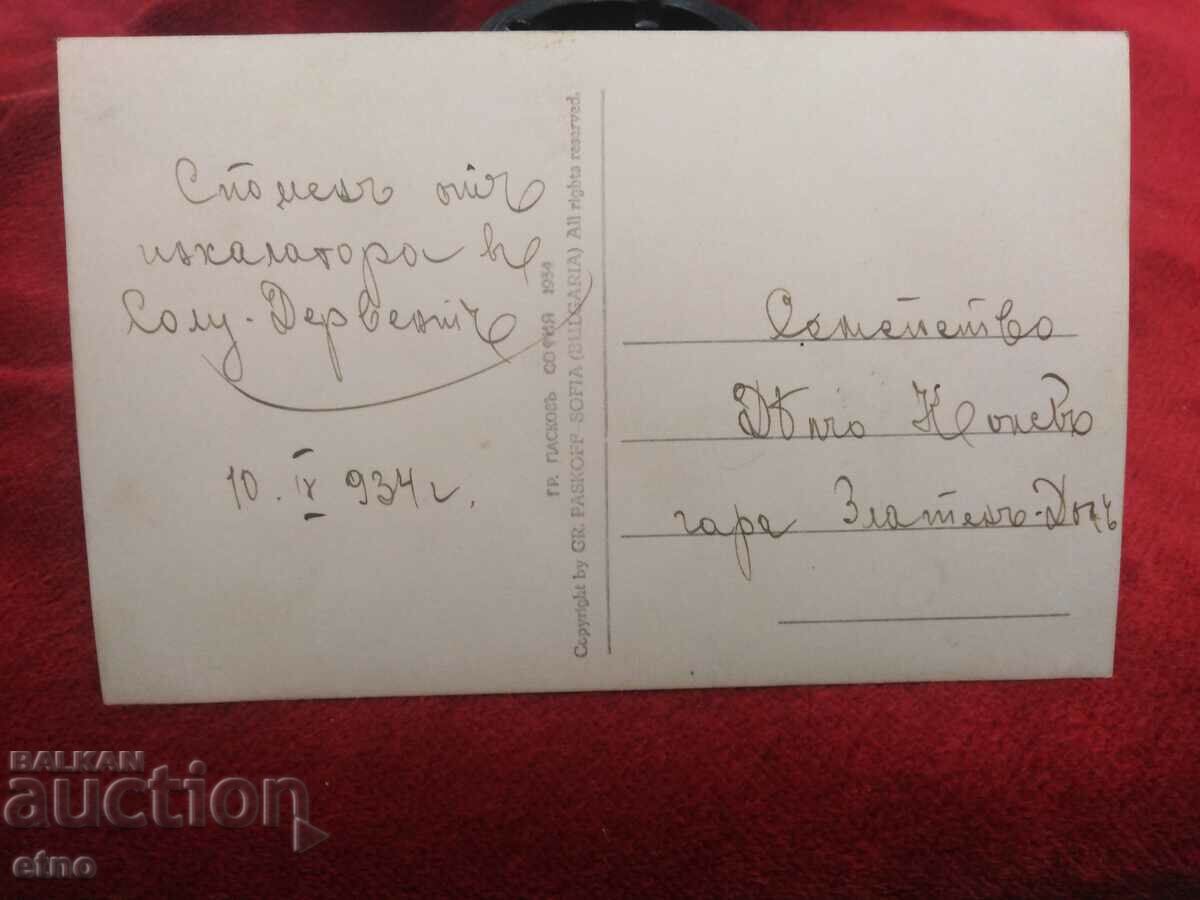 Споменъ отъ
искалатора въ
Солу-Дервентъ
10. IX 934 г.
ГР. ПАСКОВЪ СОФИЯ 1934
Copyright by GR. PASKOFF - SOFIA (BULGARIA) All rights reserved.
Семейство
Дѣлчо Коневъ
гара Златенъ-Долъ
BALKAN
auction
etno